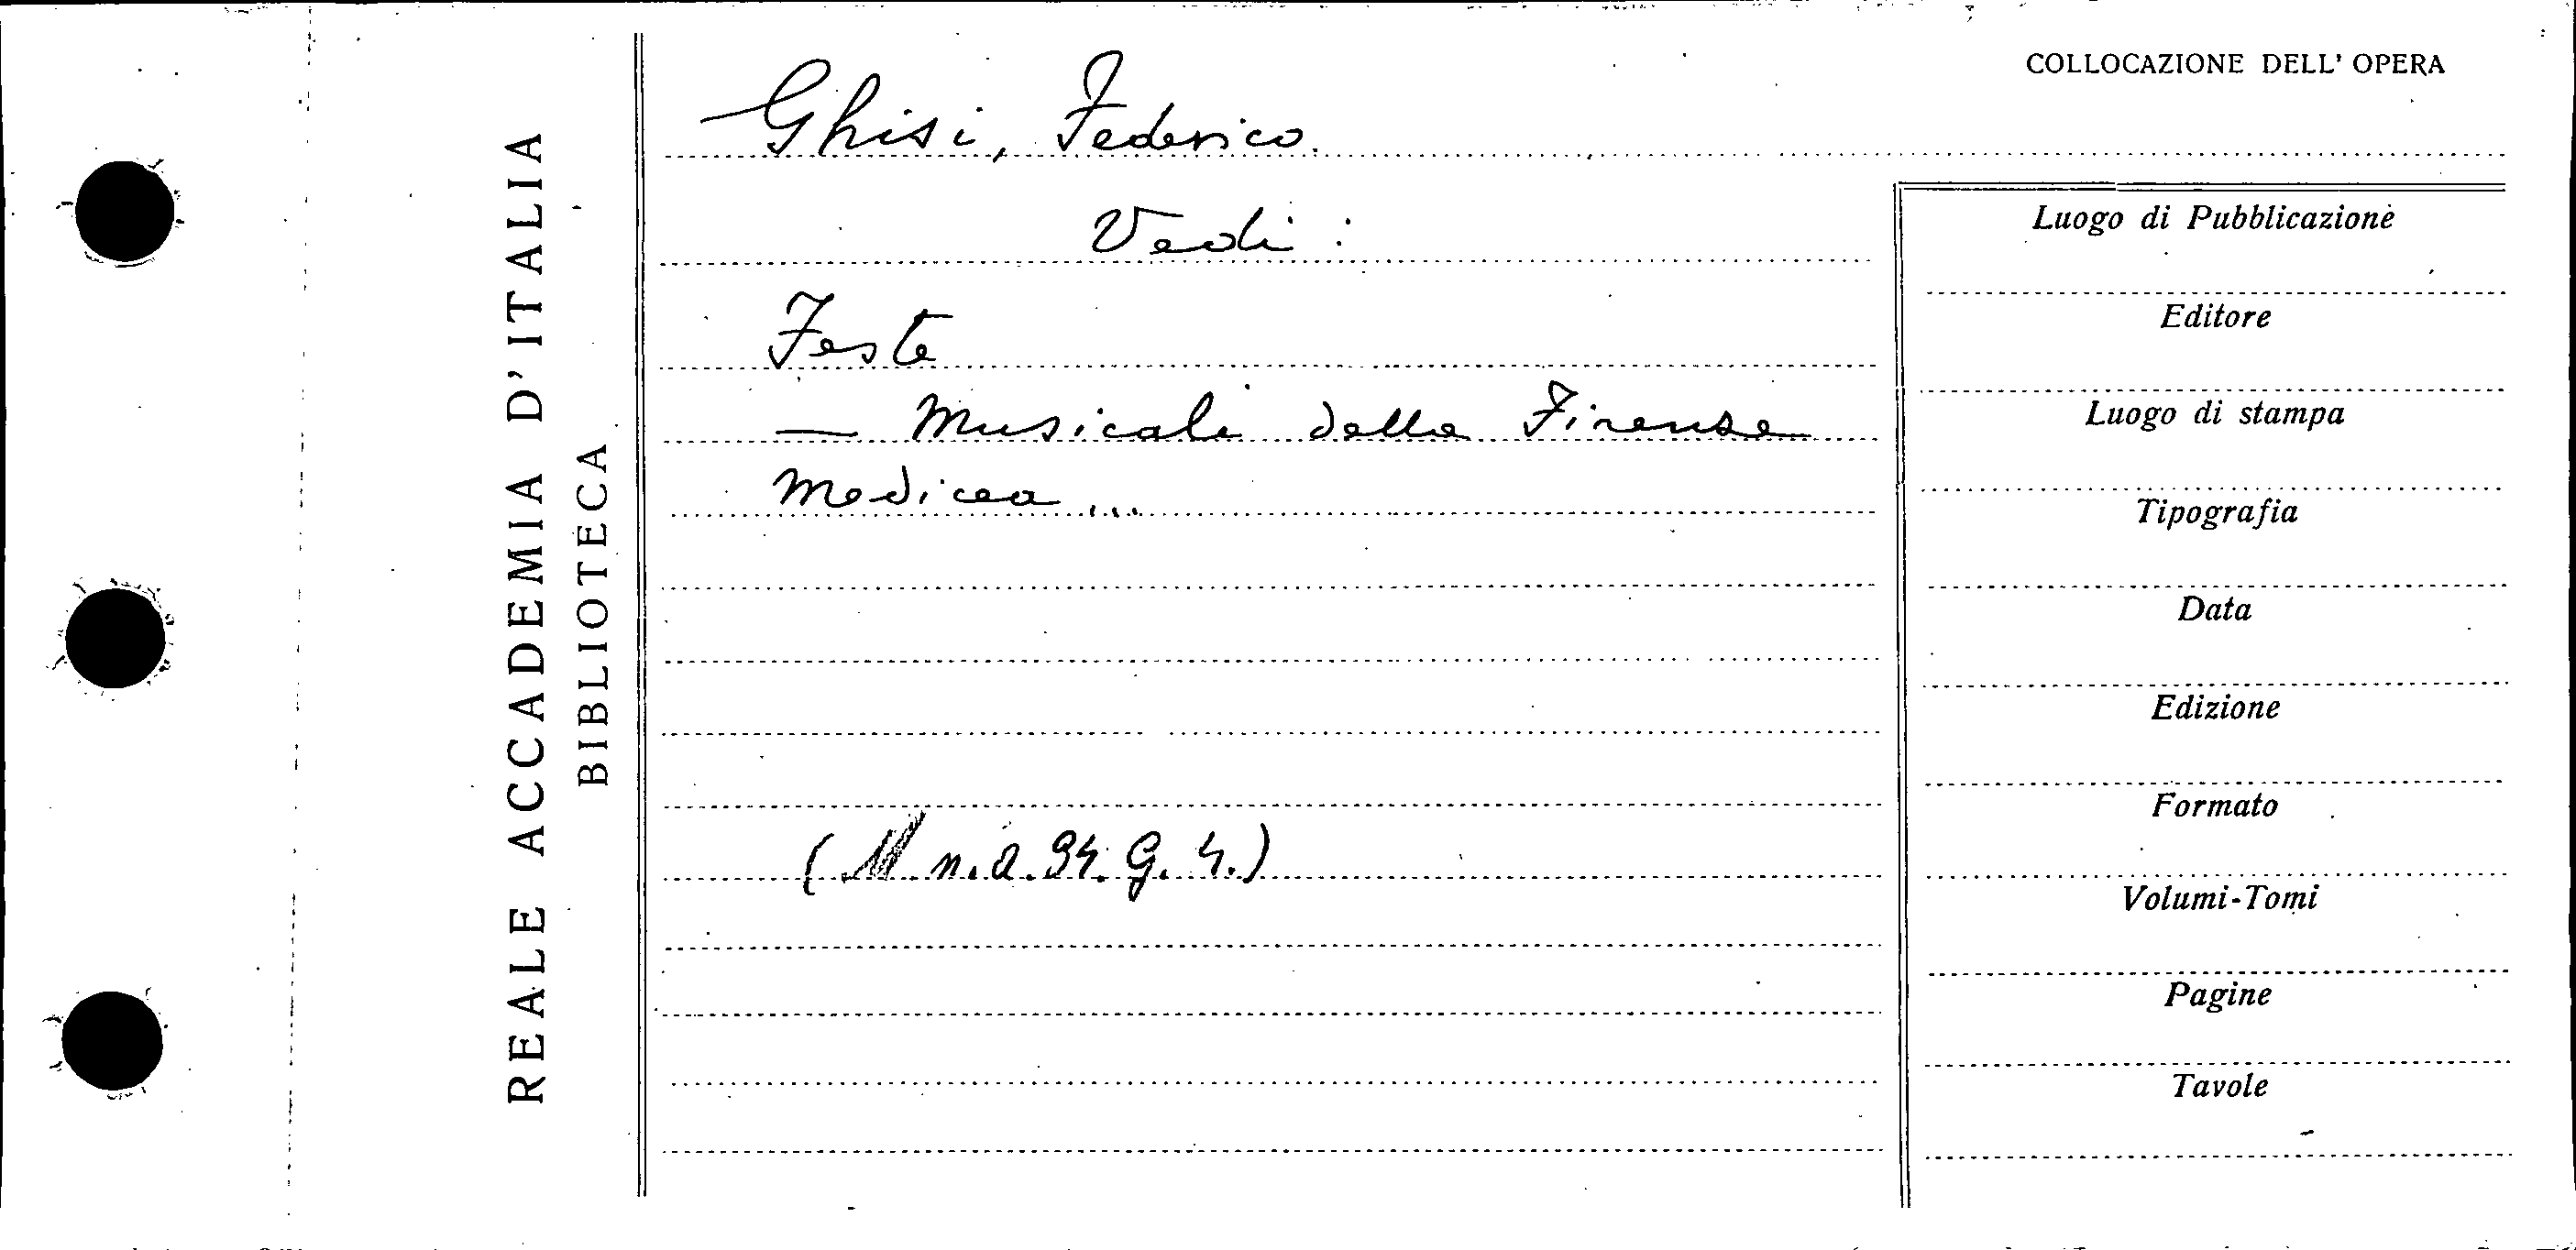 REALE ACCADEMIA D'ITALIA
BIBLIOTECA
COLLOCAZIONE DELL' OPERA
Ghisi, Federico.
Vedi :
Feste
— Musicali della Firenze
Medicea ...
(M n.a. 94. G. 4.)
Luogo di Pubblicazione
Editore
Luogo di stampa
Tipografia
Data
Edizione
Formato
Volumi-Tomi
Pagine
Tavole